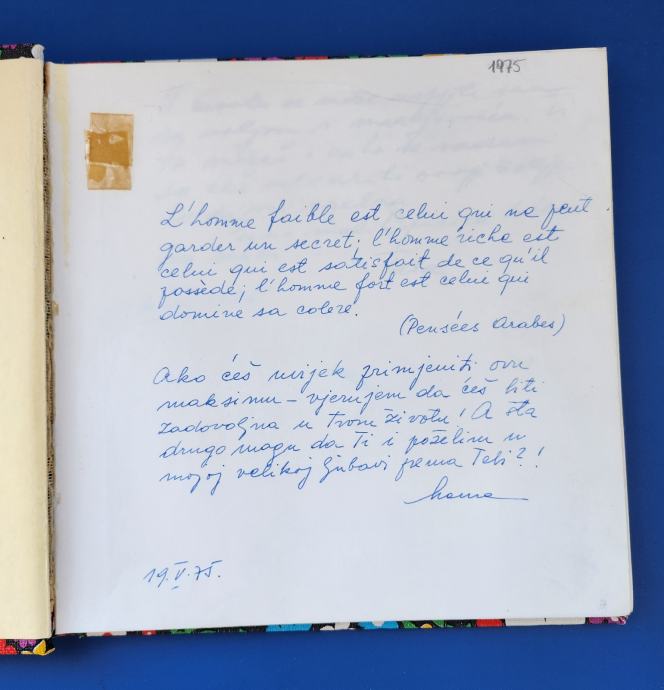 1975
L'homme faible est celui qui ne peut
garder un secret; l'homme riche est
celui qui est satisfait de ce qu'il
possède; l'homme fort est celui qui
domine sa colere.
(Pensées Arabes)
Ako ćeš uvijek primjeniti ovu
maksimu – vjerujem da ćeš biti
zadovoljna u Tvom životu! A šta
drugo mogu da Ti i poželim u
mojoj velikoj ljubavi prema Tebi?!
mama
19.V.75.